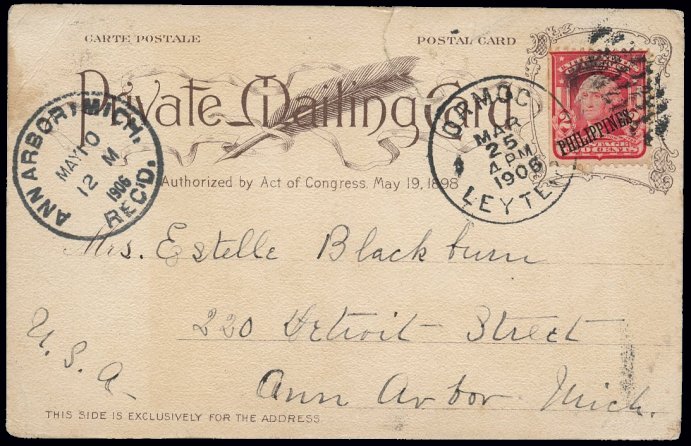 CARTE POSTALE POSTAL CARD
Private Mailing Card
Authorized by Act of Congress, May 19, 1898
ANN ARBOR, MICH.
MAY 10
12 M
1906
REC'D.
ORMOC
MAR
25
4 P.M.
1906
LEYTE
PHILIPPINES
CENTS
Mrs. Estelle Blackburn
220 Detroit Street
U.S.A
Ann Arbor Mich.
THIS SIDE IS EXCLUSIVELY FOR THE ADDRESS.